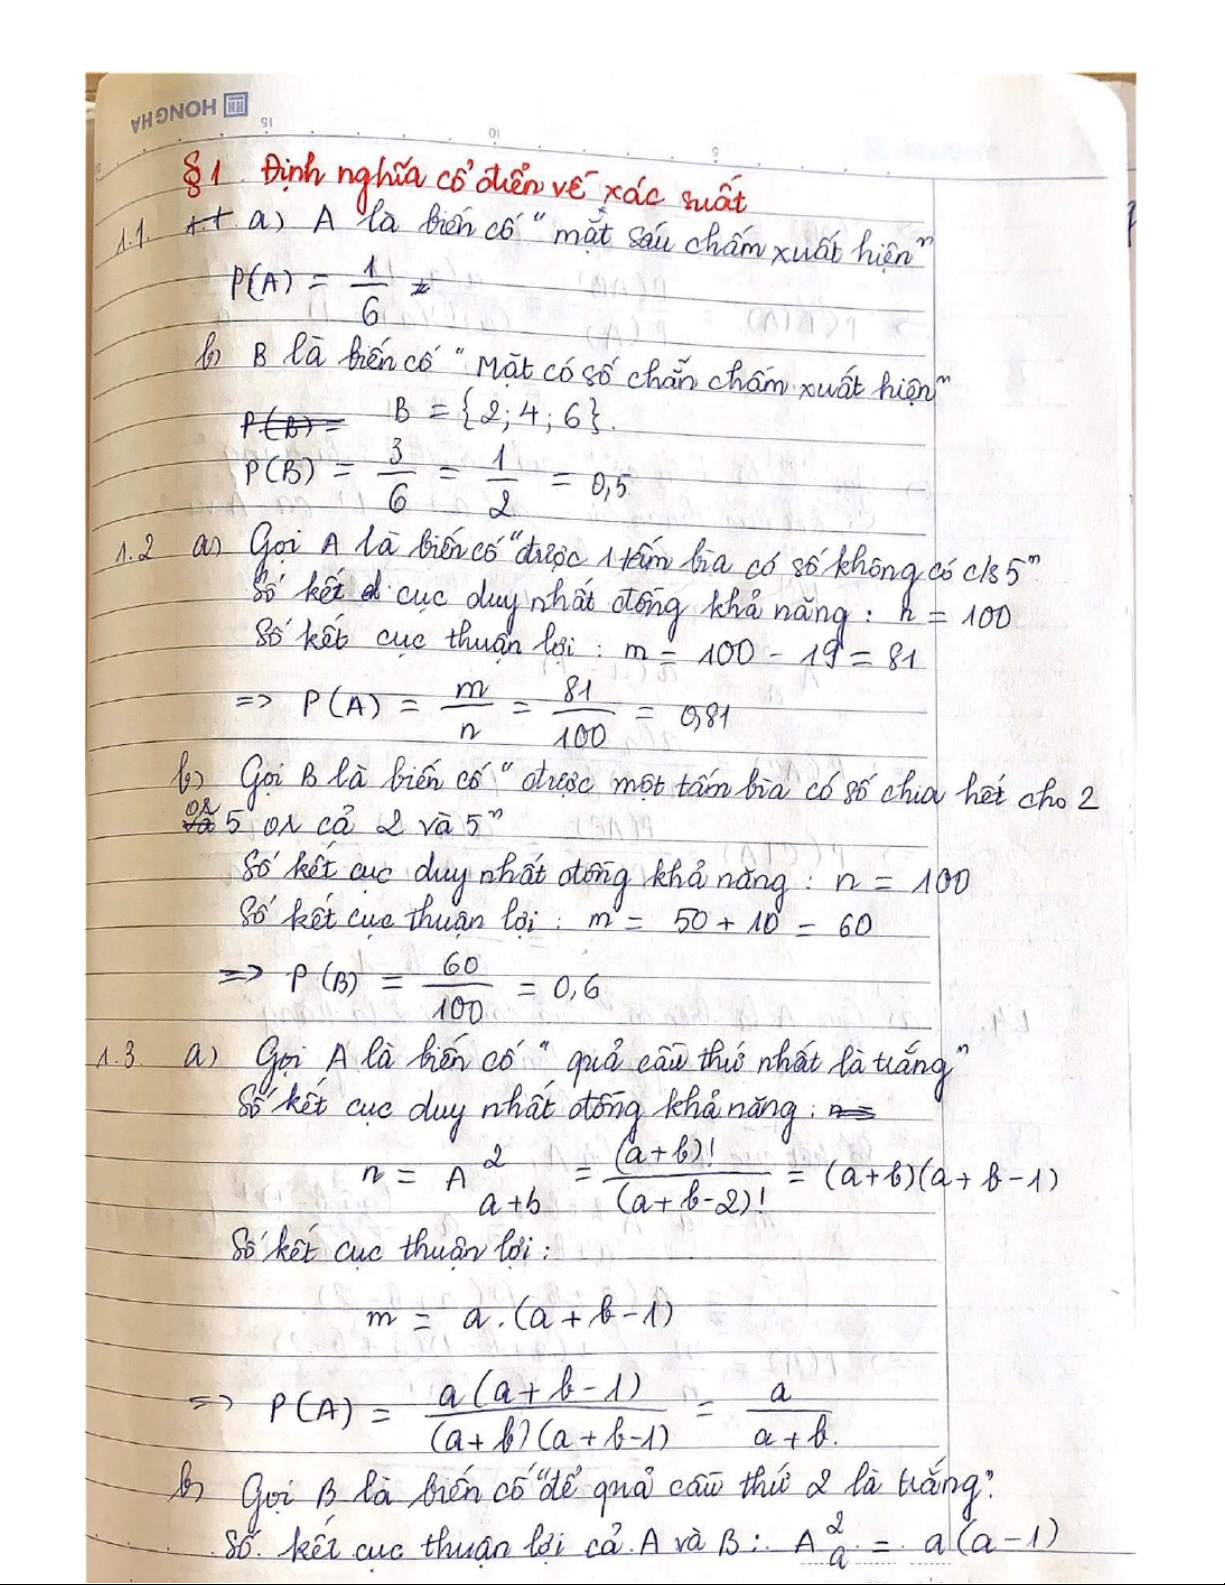 HONG HA
15 10 5
§1. Định nghĩa cổ điển về xác suất
1.1. a) A là biến cố "mặt sáu chấm xuất hiện"
P(A) = 1/6
b) B là biến cố "Mặt có số chẵn chấm xuất hiện"
P(B) = B = {2; 4; 6}.
P(B) = 3/6 = 1/2 = 0,5
1.2 a) Gọi A là biến cố "được 1 tấm bìa có số không có c/s 5"
Số kết cục duy nhất đồng khả năng : n = 100
Số kết cục thuận lợi : m = 100 - 19 = 81
=> P(A) = m/n = 81/100 = 0,81
b) Gọi B là biến cố "được một tấm bìa có số chia hết cho 2
or 5 or cả 2 và 5"
Số kết cục duy nhất đồng khả năng : n = 100
Số kết cục thuận lợi : m = 50 + 10 = 60
=> P(B) = 60/100 = 0,6
1.3. a) Gọi A là biến cố "quả cầu thứ nhất là trắng"
Số kết cục duy nhất đồng khả năng : n =
n = A²a+b = (a+b)!/(a+b-2)! = (a+b)(a+b-1)
Số kết cục thuận lợi :
m = a.(a+b-1)
=> P(A) = a(a+b-1)/(a+b)(a+b-1) = a/a+b.
b) Gọi B là biến cố "để quả cầu thứ 2 là trắng"
Số kết cục thuận lợi cả A và B : A²a = a(a-1)